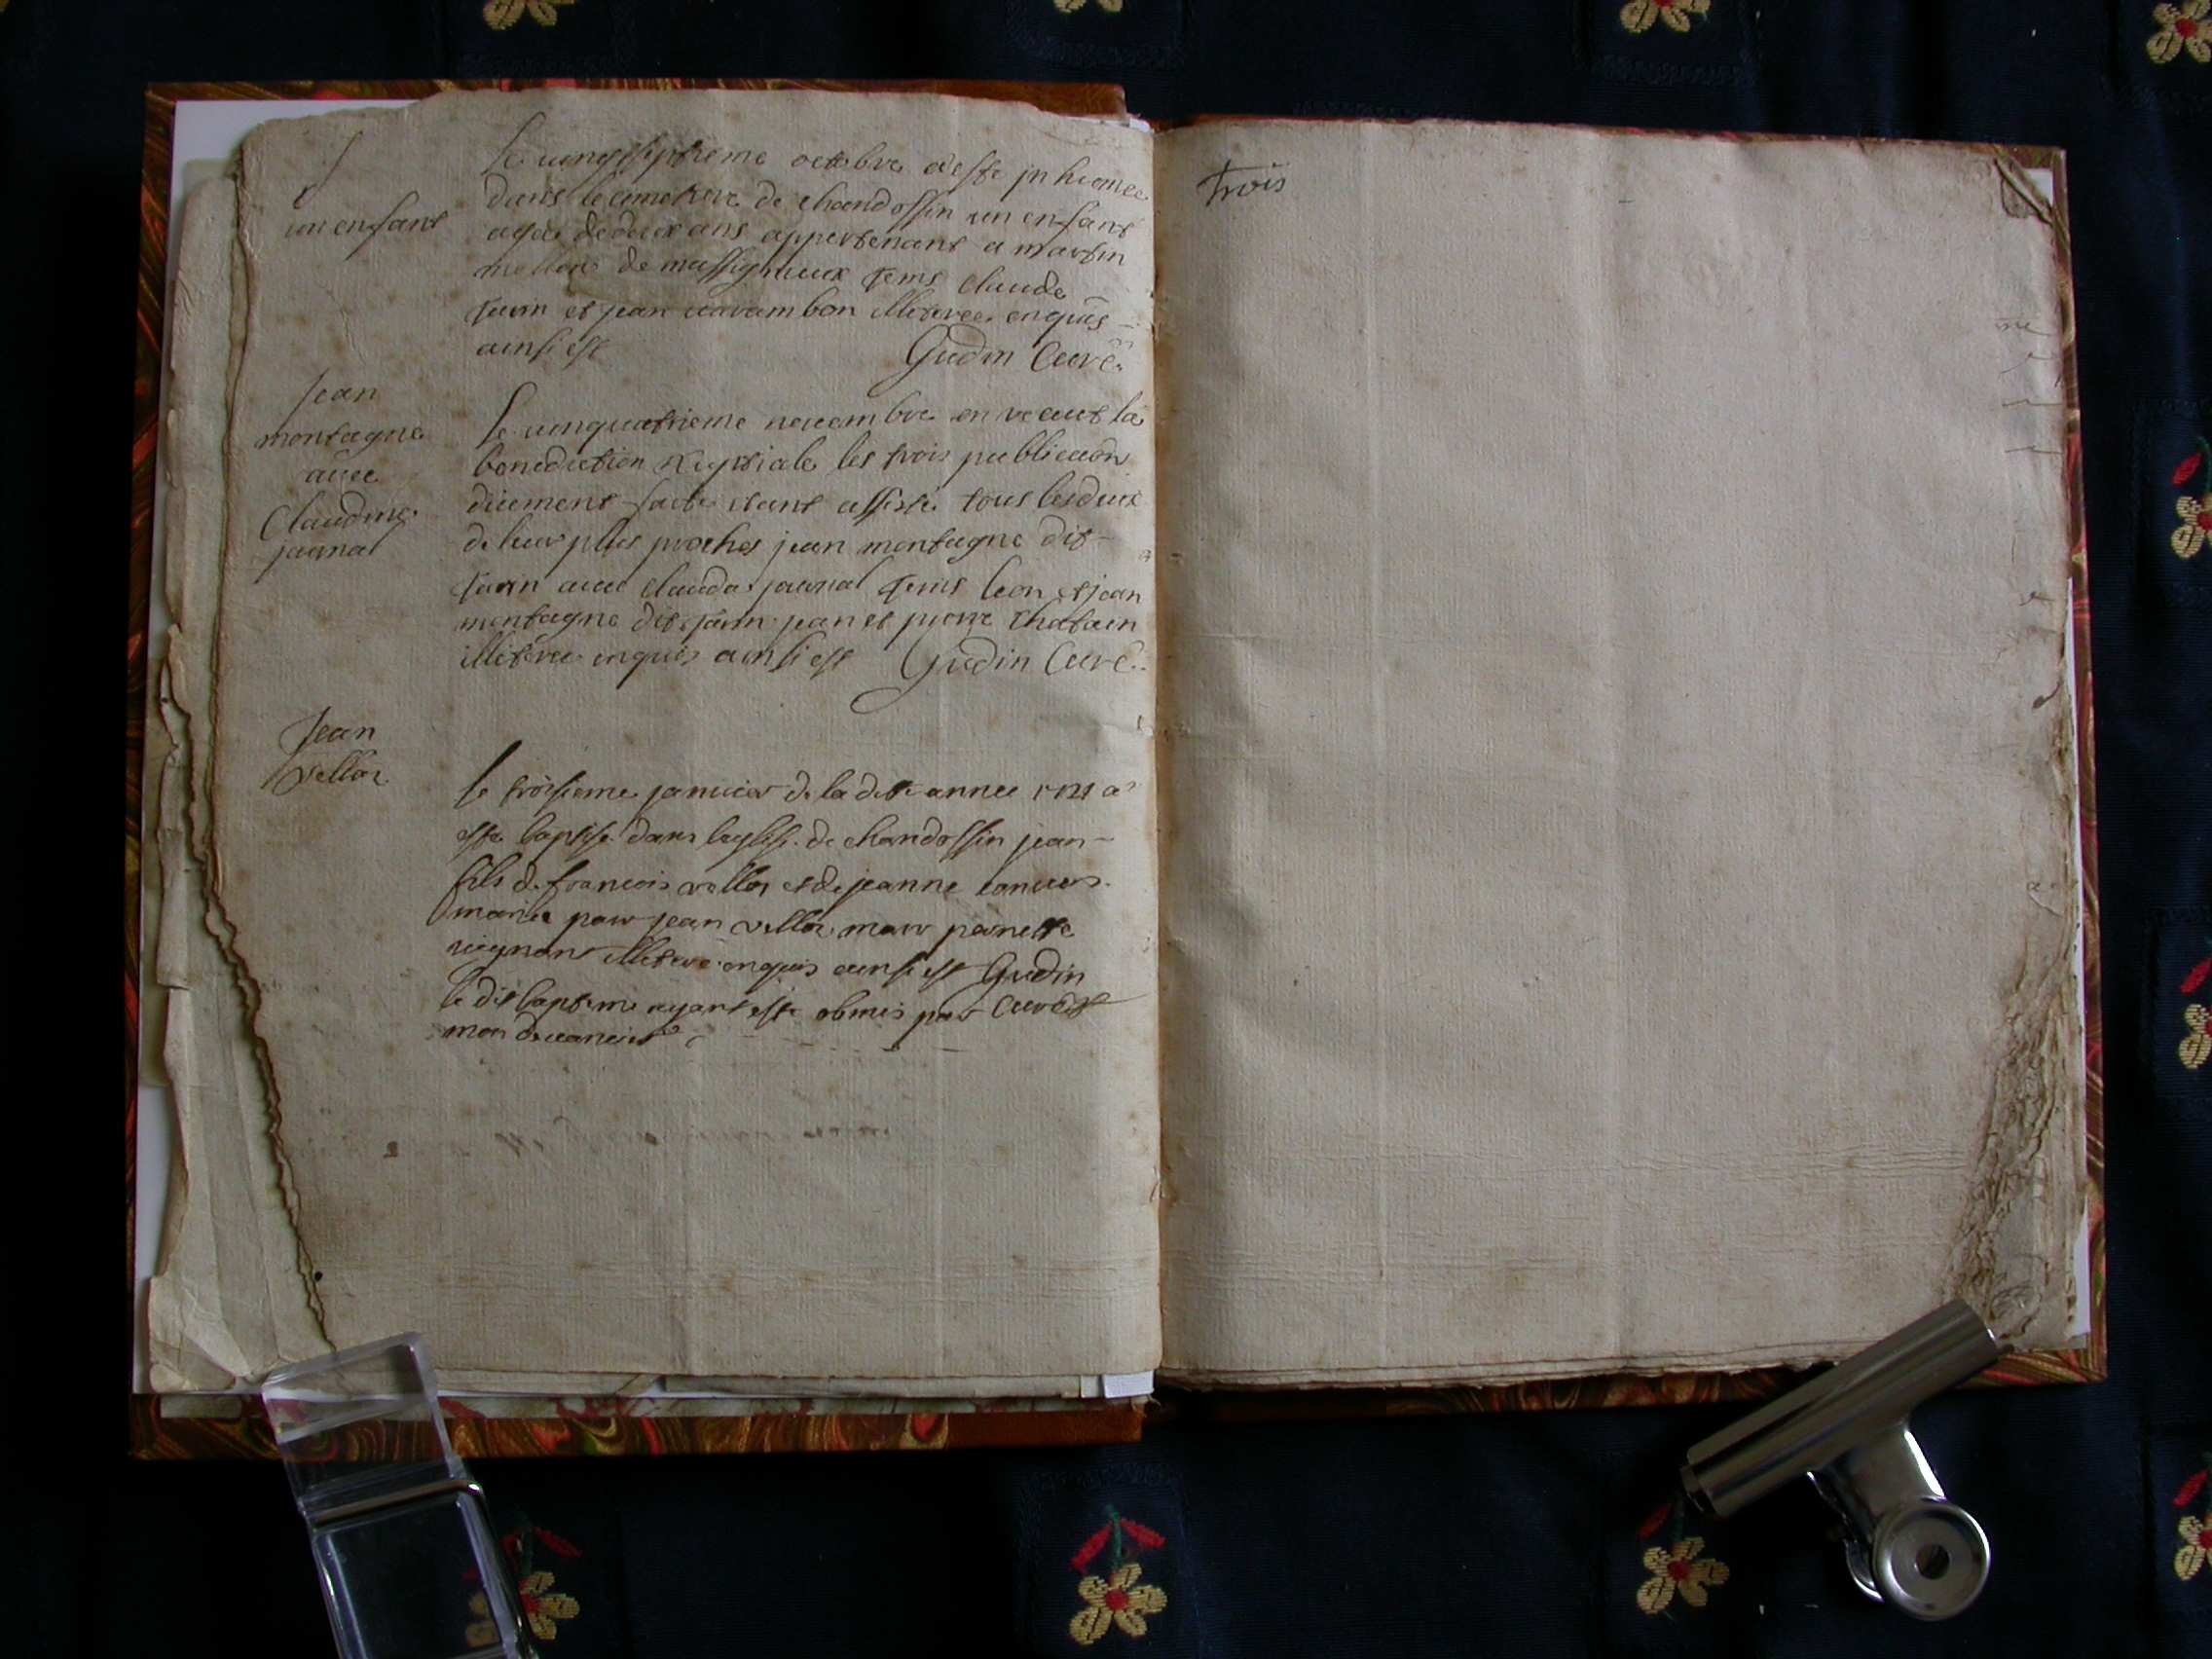 un enfant
Le vingtseptieme octobre a esté inhumée
dans le cimetiere de chandossin un enfant
agée de deux ans appertenant a martin
de massignieux tems Claude
et jean illiteree enquis
ainsi est Gudin Curé
Jean
montagne
avec
Claudine
journal
Le vinquatrieme novembre on receut la
benediction Nuptiale les trois publication
düement faite etant assisté tous les deux
de leur plus proches jean montagne dit
avec claude journal tems leon et jean
montagne dit jean et pierre chatain
illiteree enquis ainsi est Gudin Curé
Jean
vellor
le troisieme janvier de la dite année 1721 a
esté baptisé dans leglise de chandossin jean
fils de francois vellor et de jeanne
mariée parr jean vellor marr pernette
illiteree enquis ainsi est Gudin
le dit bapteme ayant esté obmis par Curé
mon devancier
trois